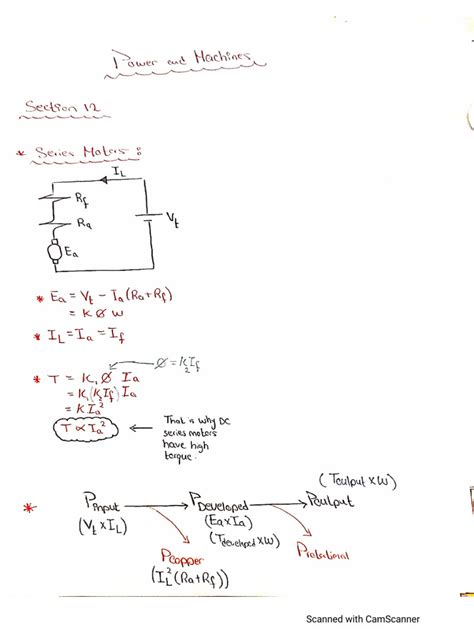 Power and Machines
Section 12
* Series Motors :
I_L
R_f
R_a
V_t
E_a
* E_a = V_t - I_a (R_a + R_f)
= K Ø ω
* I_L = I_a = I_f
Ø = K_2 I_f
* T = K_1 Ø I_a
= K_1 (K_2 I_f) I_a
= K I_a^2
T ∝ I_a^2
That is why DC
series motors
have high
torque.
(Toutput x ω)
* P_Input → P_Developed → P_output
(V_t x I_L)
(E_a x I_a)
(T_developed x ω)
P_copper
P_rotational
(I_L^2 (R_a + R_f))
Scanned with CamScanner